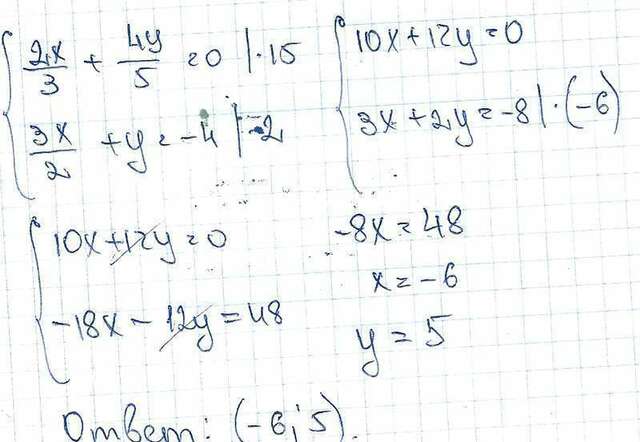 2x/3 + 4y/5 = 0 |·15
3x/2 + y = -4 |·2
10x + 12y = 0
3x + 2y = -8 |·(-6)
10x + 12y = 0
-18x - 12y = 48
-8x = 48
x = -6
y = 5
Ответ: (-6; 5).